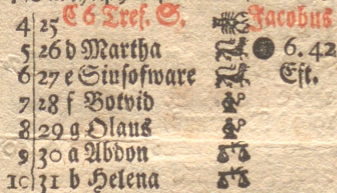 4 25 C 6 Tref. S. Jacobus
5 26 d Martha 6. 42
6 27 e Siusofware Eft.
7 28 f Botvid
8 29 g Olaus
9 30 a Abdon
10 31 b Helena